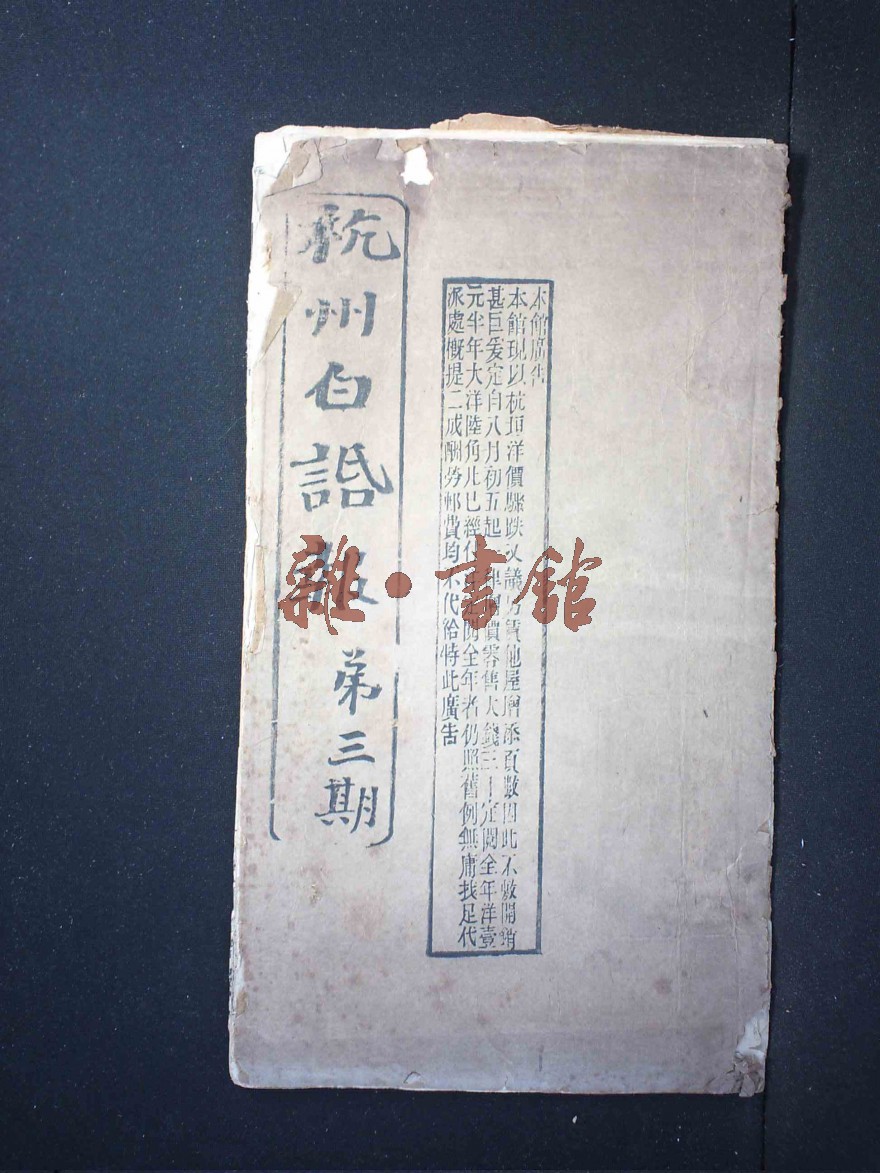 杭州白話報 第三期
本館廣告
本館現以杭垣洋價驟跌又議 他屋增添頁數因此不敷開銷
甚巨爰定自八月初五起 價零售大錢三十定閱全年洋壹
元半年大洋陸角凡已經 定閱全年者仍照舊例無庸找足代
派處槪提二成酬勞郵費均不代給特此廣告
雜·書館